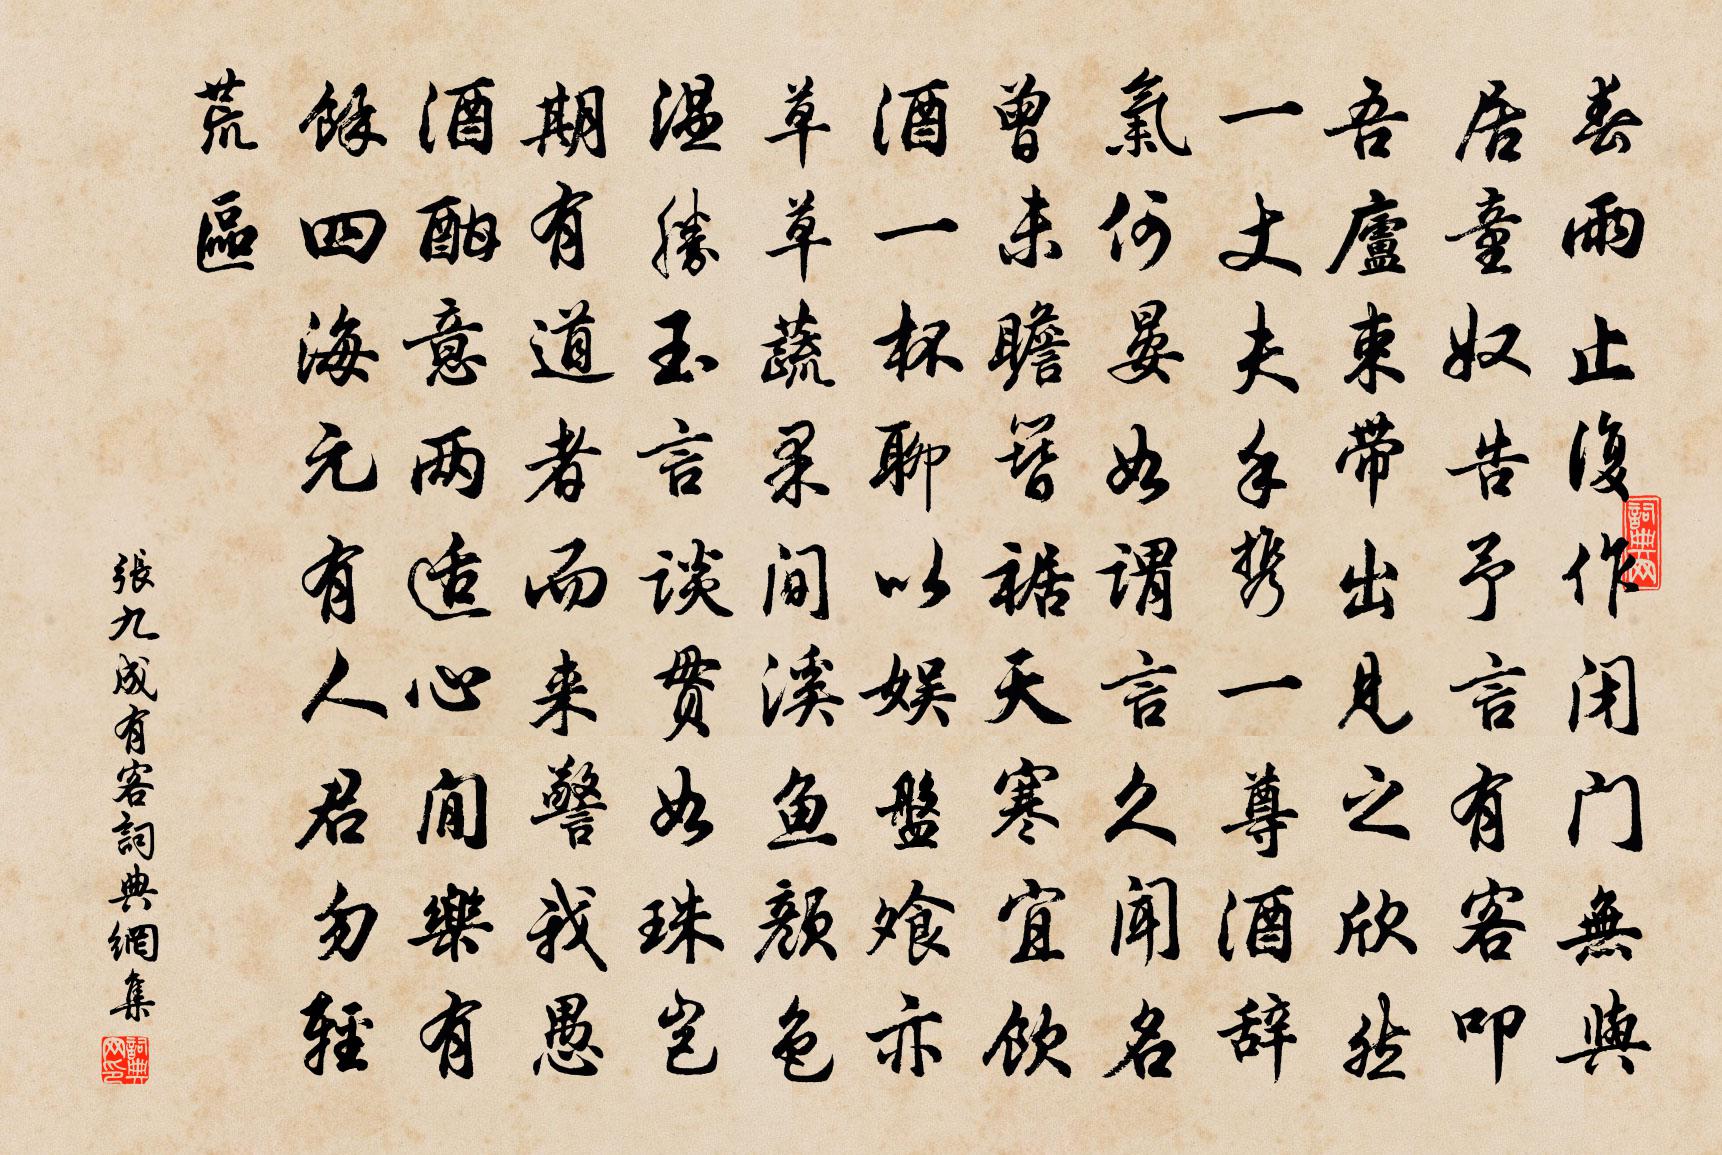 春雨止復作闭门無與
居童奴告予言有客叩
吾廬束带出見之欣然
一丈夫手携一尊酒辞
氣何晏如谓言久闻名
曾未瞻簪裾天寒宜飲
酒一杯聊以娱盤飧亦
草草蔬果间溪鱼颜色
温勝玉言谈贯如珠岂
期有道者而来警我愚
酒酣意两适心閒樂有
餘四海元有人君勿輕
荒區
張九成有客詞典網集
詞典网
詞典网印